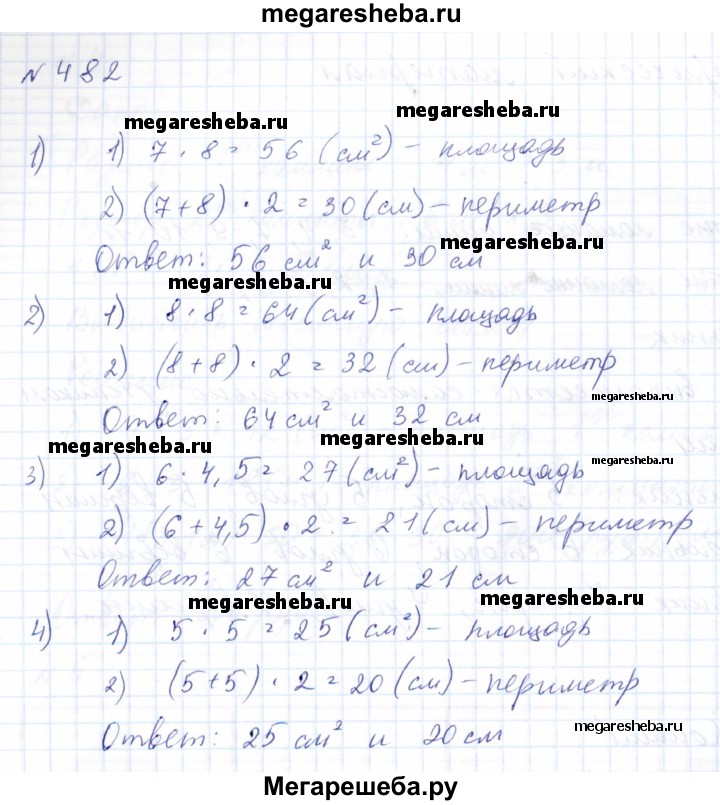 megaresheba.ru
№ 482
megaresheba.ru
megaresheba.ru
1) 1) 7 · 8 = 56 (см²) - площадь
2) (7+8) · 2 = 30 (см) - периметр
megaresheba.ru
Ответ: 56 см² и 30 см
megaresheba.ru
2) 1) 8 · 8 = 64 (см²) - площадь
2) (8+8) · 2 = 32 (см) - периметр
megaresheba.ru
Ответ: 64 см² и 32 см
megaresheba.ru
megaresheba.ru
megaresheba.ru
3) 1) 6 · 4,5 = 27 (см²) - площадь
2) (6+4,5) · 2 = 21 (см) - периметр
Ответ: 27 см² и 21 см
megaresheba.ru
megaresheba.ru
4) 1) 5 · 5 = 25 (см²) - площадь
2) (5+5) · 2 = 20 (см) - периметр
megaresheba.ru
Ответ: 25 см² и 20 см
Мегарешеба.ру